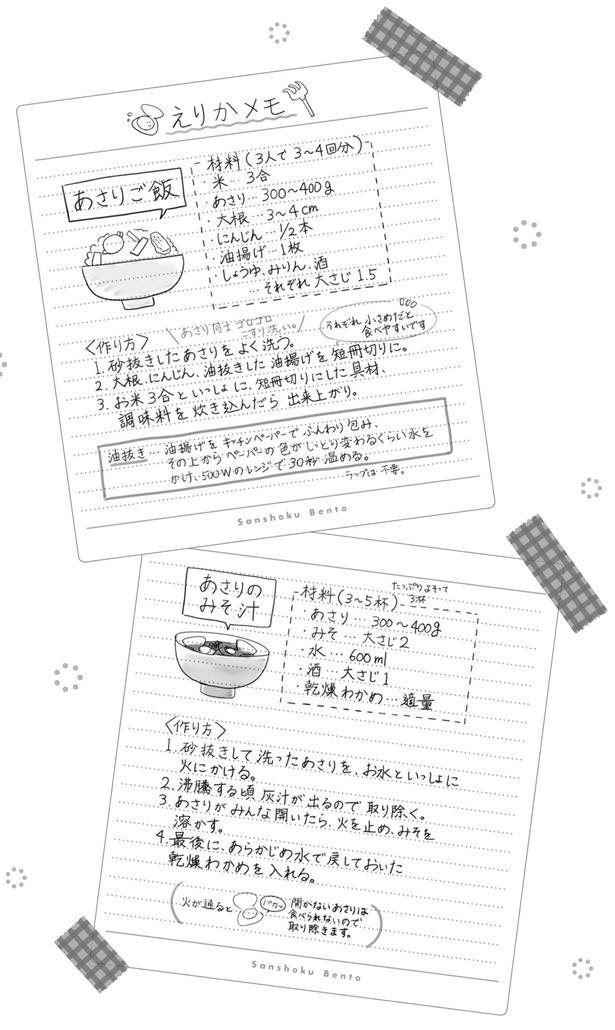 えりかメモ
あさりご飯
材料(3人で3〜4回分)
・米…3合
・あさり…300〜400g
・大根…3〜4cm
・にんじん…1/2本
・油揚げ…1枚
・しょうゆ、みりん、酒
…それぞれ大さじ1.5
〈作り方〉
あさり同士ゴロゴロ
こすり洗い。
それぞれ小さめだと
食べやすいです
1. 砂抜きしたあさりをよく洗う。
2. 大根、にんじん、油抜きした油揚げを短冊切りに。
3. お米3合といっしょに、短冊切りにした具材、
調味料を炊き込んだら出来上がり。
油抜き 油揚げをキッチンペーパーでふんわり包み、
その上からペーパーの色がしっとり変わるくらい水を
かけ、500Wのレンジで30秒温める。
ラップは不要。
Sanshoku Bento
あさりの
みそ汁
材料(3〜5杯)
たっぷりよそって
3杯
・あさり…300〜400g
・みそ…大さじ2
・水…600ml
・酒…大さじ1
・乾燥わかめ…適量
〈作り方〉
1. 砂抜きして洗ったあさりを、お水といっしょに
火にかける。
2. 沸騰する頃灰汁が出るので取り除く。
3. あさりがみんな開いたら、火を止め、みそを
溶かす。
4. 最後に、あらかじめ水で戻しておいた
乾燥わかめを入れる。
火が通ると
パカッ
開かないあさりは
食べられないので
取り除きます。
Sanshoku Bento